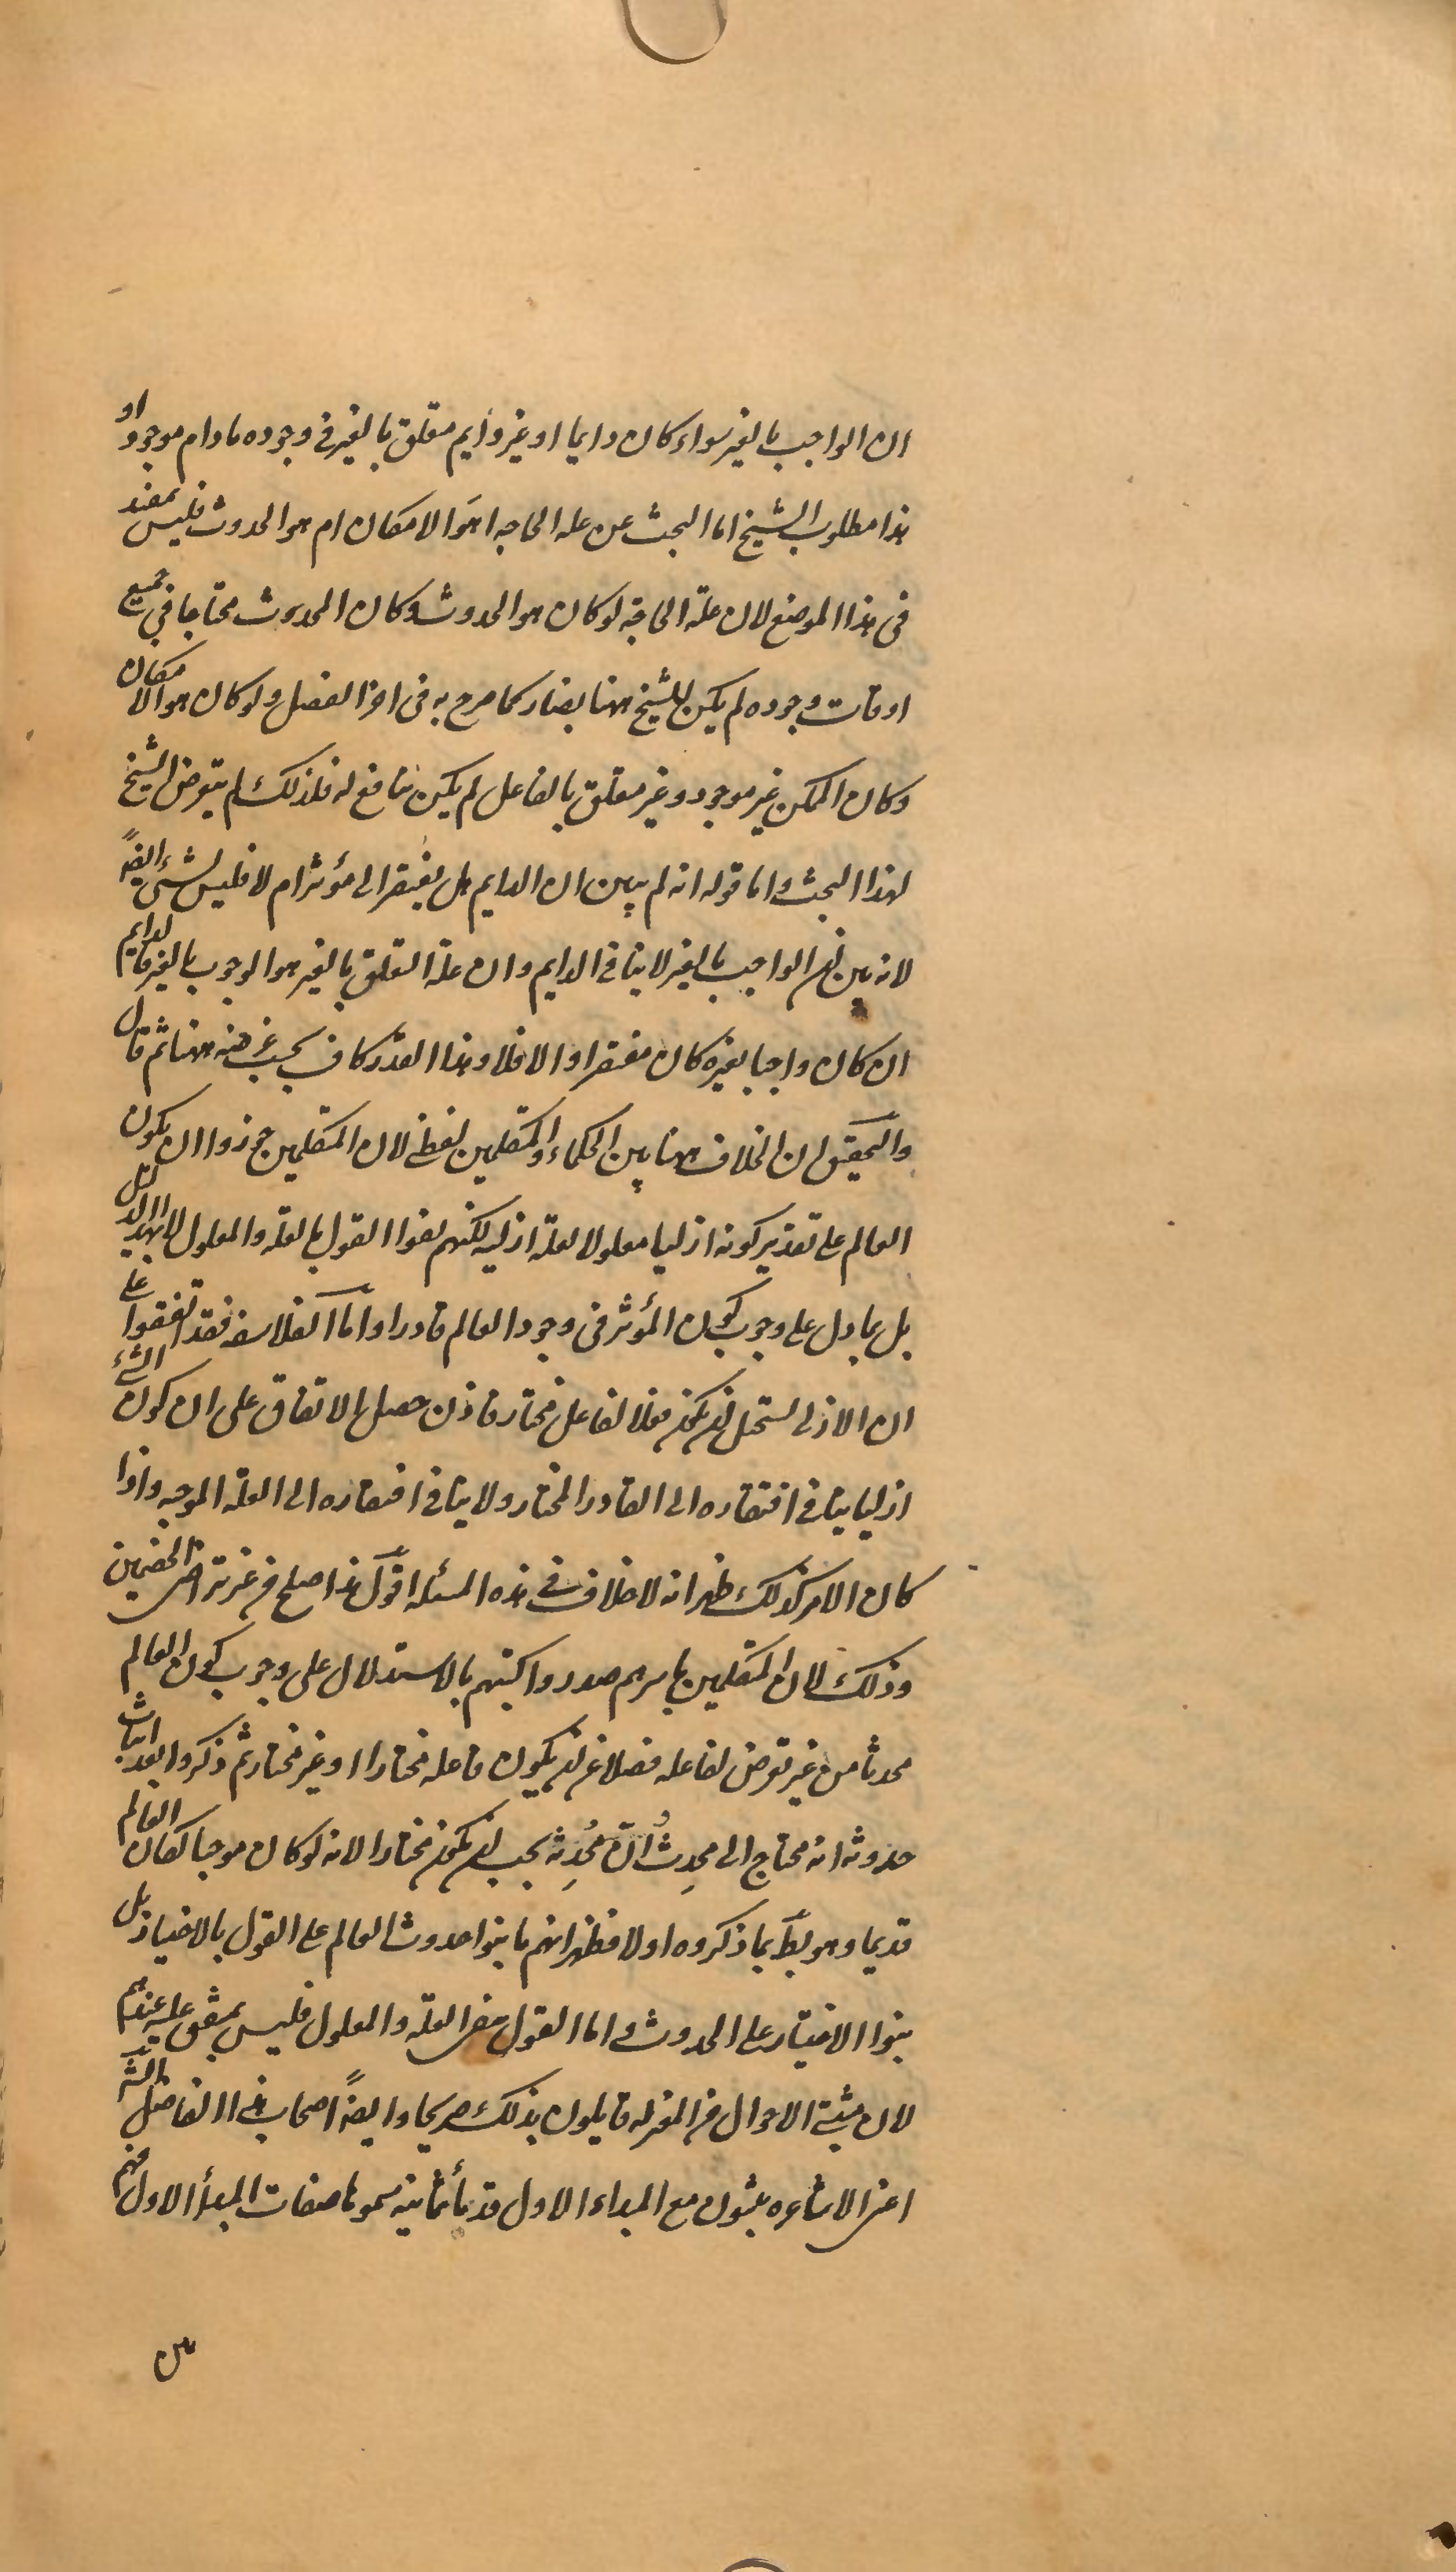 ان الواجب بالغير سواء كان دايما او غير دايم متعلق بالغير فى وجوده ما دام موجودا و
هذا مطلوب الشيخ اما البحث عن عله الحاجه اهو الامكان ام هو الحدوث فليس بمفيد
فى هذا الموضع لان علة الحاجة لو كان هو الحدوث وكان المحدث محتاجا فى جميع
اوقات وجوده لم يكن للشيخ ههنا بضار كما صرح به فى اخر الفصل ولو كان هو الامكان
وكان الممكن غير موجود وغير متعلق بالفاعل لم يكن بنافع له فلذلك لم يتعرض الشيخ
لهذا البحث واما قوله انه لم يبين ان الدايم هل يفتقر الى مؤثر ام لا فليس بشئ ايضا
لانه بين ان الواجب بالغير لا ينافى الدايم وان علة التعلق بالغير هو الوجوب بالغير فالدايم
ان كان واجبا بغيره كان مفتقرا والا فلا وهذا القدر كاف بحسب غرضه ههنا ثم قال
والتحقيق ان الخلاف ههنا بين الحكماء والمتكلمين لفظى لان المتكلمين جوزوا ان يكون
العالم على تقدير كونه ازليا معلولا لعلة ازليه لكنهم نفوا القول بالعله والمعلول لا بهذا الدليل
بل بما دل على وجوب كون المؤثر فى وجود العالم قادرا واما الفلاسفه فقد اتفقوا على
ان الازلى يستحيل ان يكون فعلا لفاعل مختار فاذن حصل الاتفاق على ان كون الشئ
ازليا ينافى افتقاره الى القادر المختار ولا ينافى افتقاره الى العلة الموجبه واذا
كان الامر كذلك ظهر انه لا خلاف فى هذه المسئله اقول هذا صلح من غير تراضى الخصمين
وذلك لان المتكلمين باسرهم صدروا كتبهم بالاستدلال على وجوب كون العالم
محدثا من غير تعرض لفاعله فضلا عن ان يكون فاعله مختارا او غير مختار ثم ذكروا بعد اثبات
حدوثه انه محتاج الى محدِث وان مُحدِثه يجب ان يكون مختارا لانه لو كان موجبا لكان العالم
قديما وهو بط بما ذكروه اولا فظهر انهم ما بنوا حدوث العالم على القول بالاختيار بل
بنوا الاختيار على الحدوث واما القول بنفى العلة والمعلول فليس بمتفق عليه عندهم
لان مثبتى الاحوال من المعتزله قايلون بذلك صريحا وايضا اصحاب هذا الفاضل
اعنى الاشاعره يثبتون مع المبداء الاول قدماء ثمانية سموها صفات المبدأ الاول فهم